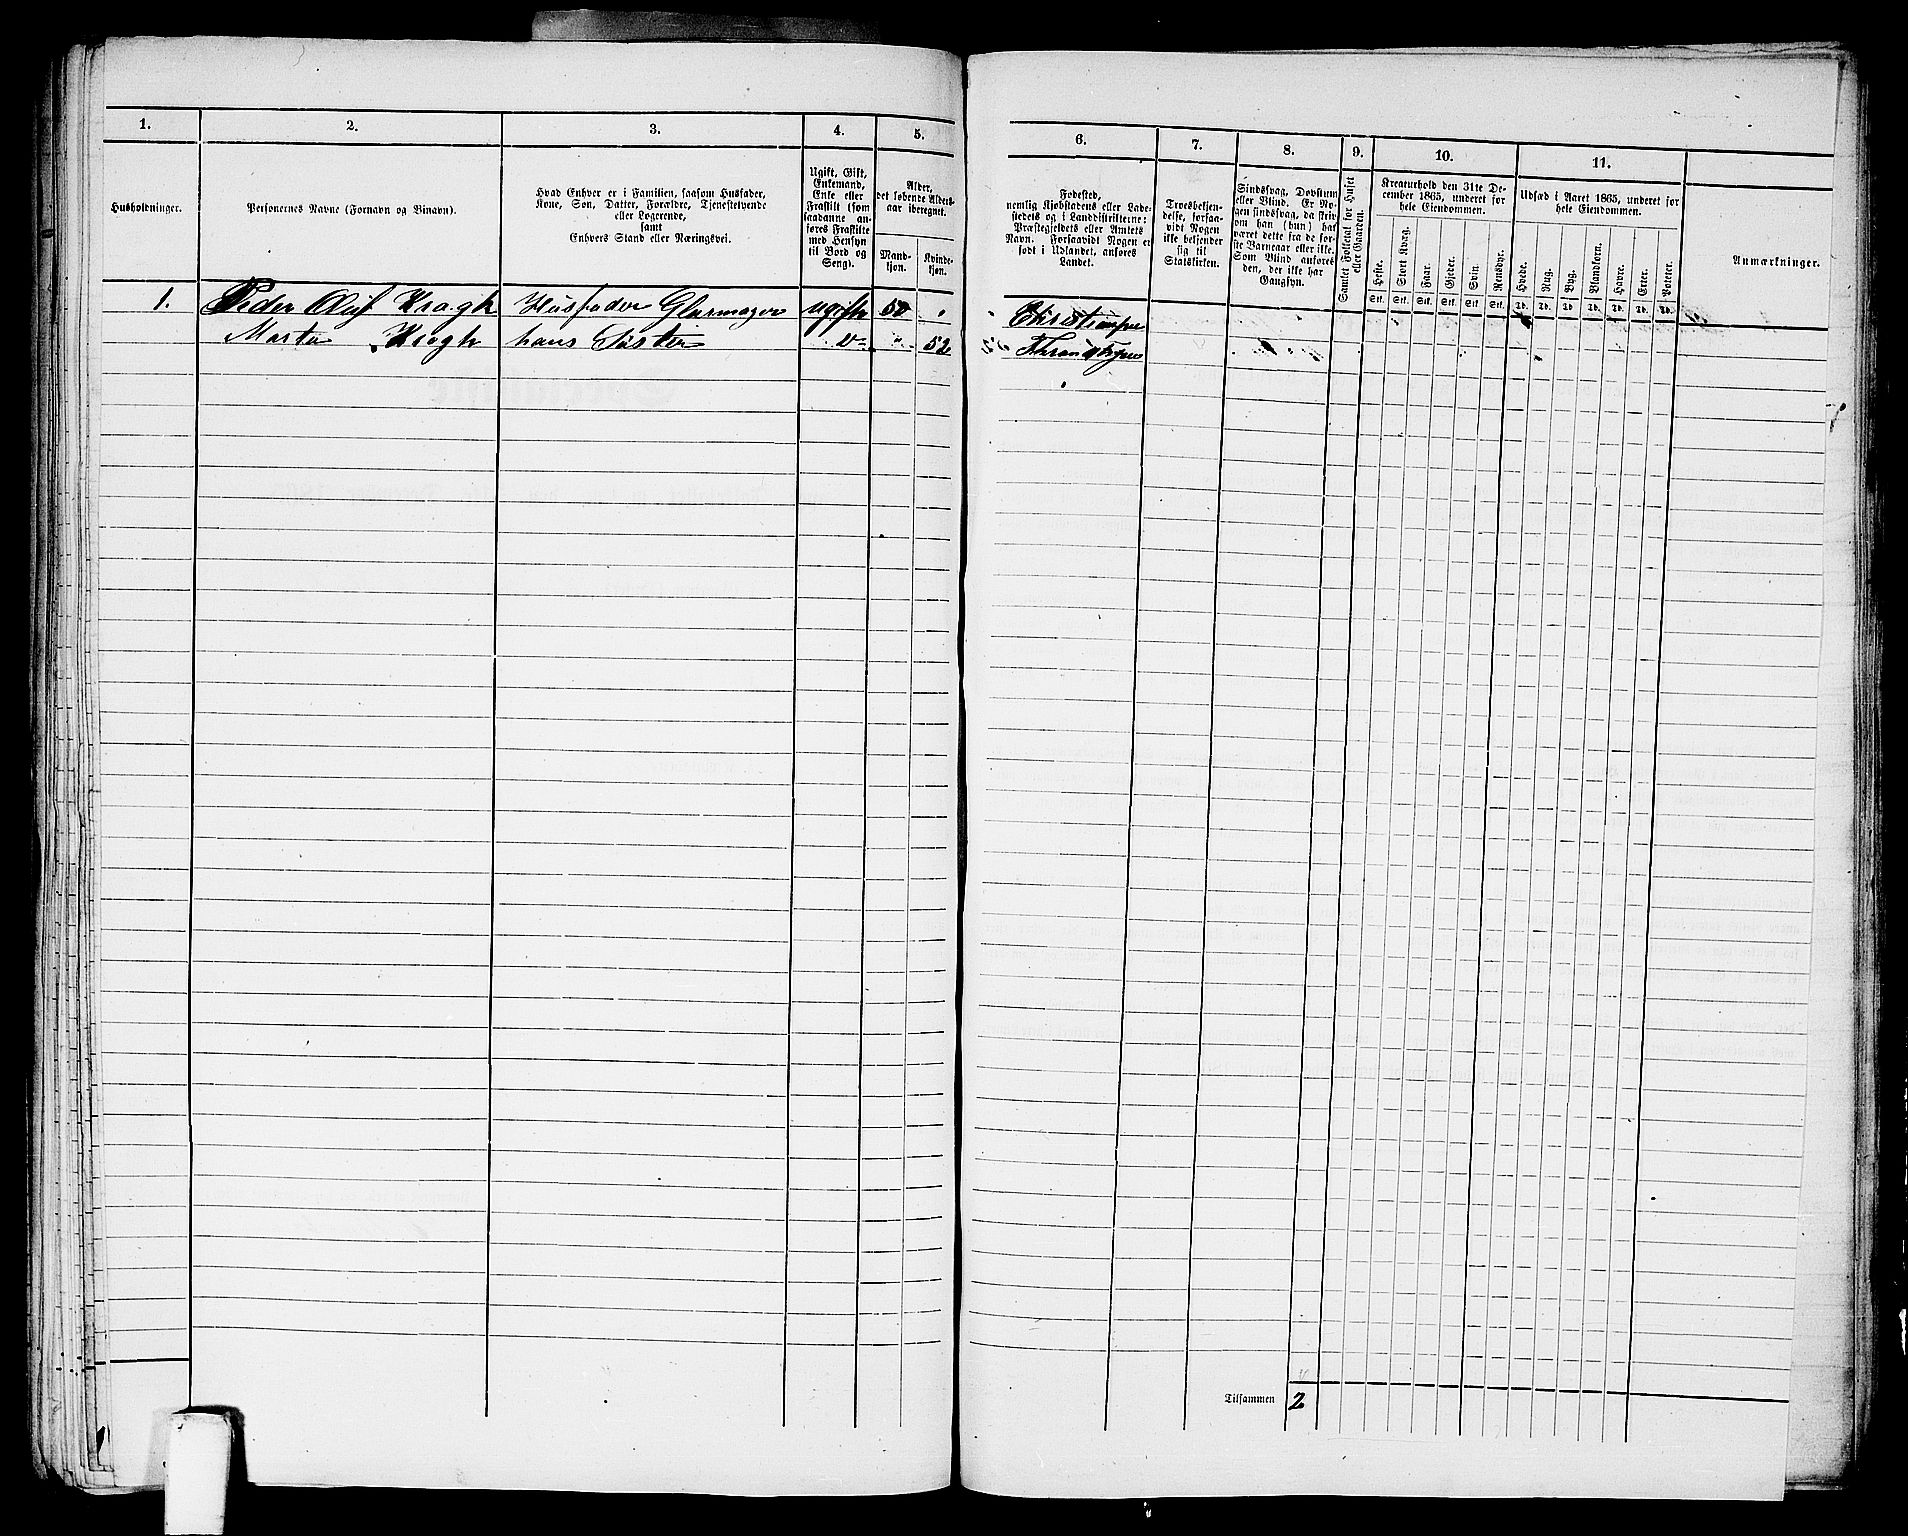 1.
2.
3.
4.
5.
Husholdninger.
Personernes Navne (Fornavn og Binavn).
Hvad Enhver er i Familien, saasom Husfader,
Kone, Søn, Datter, Forældre, Tjenestetyende
eller Logerende,
samt
Enhvers Stand eller Næringsvei.
Ugift, Gift,
Enkemand,
Enke eller
Fraskilt (som
saadanne an-
føres Fraskilte
med Hensyn
til Bord og
Seng).
Alder,
det løbende Alders-
aar iberegnet.
Mand-
kjøn.
Kvinde-
kjøn.
1. Peder Oluf Kragh Husfader Glarmager ugift 50
Marta Kragh hans Søster 52
6.
7.
8.
9.
10.
11.
Fødested,
nemlig Kjøbstadens eller Lade-
stedets og i Landdistrikterne:
Præstegjeldets eller Amtets
Navn. Forsaavidt Nogen er
født i Udlandet, anføres
Landet.
Troesbekjen-
delse, forsaa-
vidt Nogen
ikke bekjender
sig til
Statskirken.
Sindssvag, Døvstum
eller Blind. Er No-
gen sindssvag, da skriv
om han (hun) har
været dette fra de før-
ste Barneaar eller ikke.
Som Blind anføres
den, der ikke har
Gangsyn.
Samlet Folketal for Huset
eller Gaarden.
Kreaturhold den 31te De-
cember 1865, underet for
hele Eiendommen.
Heste.
Stort Kvæg.
Faar.
Gjeder.
Svin.
Rensdyr.
Stk. Stk. Stk. Stk. Stk. Stk.
Udsæd i Aaret 1865, underet for
hele Eiendommen.
Hvede.
Rug.
Byg.
Blandkorn.
Havre.
Erter.
Poteter.
Td. Td. Td. Td. Td. Td. Td.
Anmærkninger.
Tilsammen 2